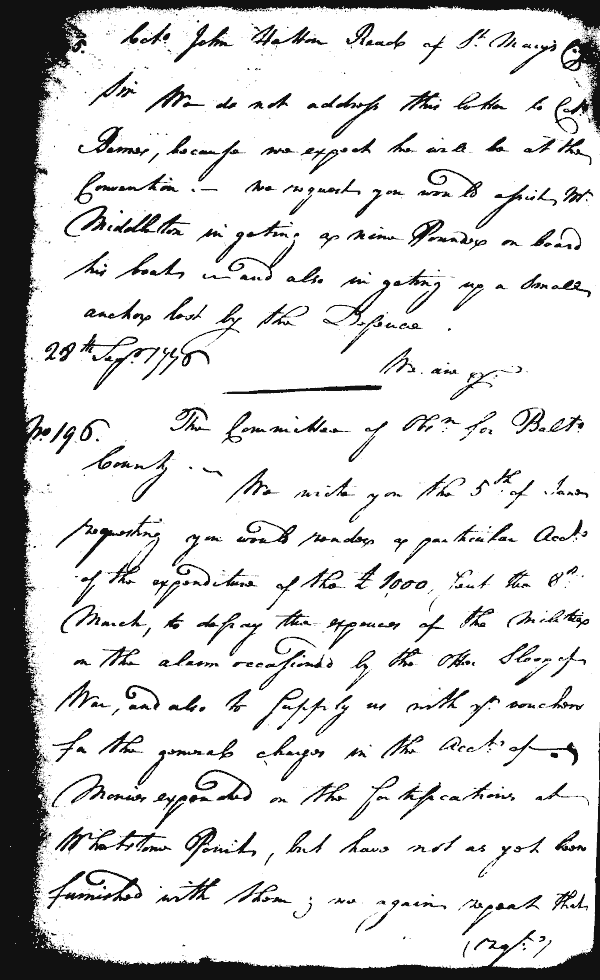 5. Colo John Hatton Read of St Marys Co
Sir We do not address this letter to Colo
Barnes, because we expect he will be at the
Convention. — we request you would assist Mr
Middleton in geting a nine Pounder on board
his boat — and also in geting up a small
anchor lost by the Defence.
28th Sepr 1776 We are &c.
No 196. The Committee of Obsn for Balto
County. —
We wrote you the 5th of June
requesting you would render a particular Accts
of the expenditure of the £ 1000, sent the 8th
March, to defray the expences of the militia
on the alarm occasioned by the Otter Sloop of
War, and also to supply us with yr vouchers
for the general charges in the Acct of
Monies expended on the fortifications at
Whetstone Point, but have not as yet been
furnished with them; we again repeat that
(reqt)